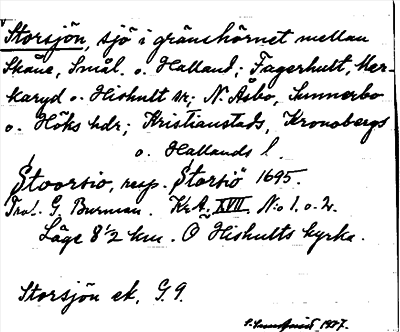 Storsjön, sjö i gränshörnet mellan
Skåne, Smål. o. Halland; Fagerhult, Mar-
karyd o. Hishult sr; N. Åsbo, Sunnerbo
o. Höks hdr; Kristianstads, Kronobergs
o. Hallands l.
Stoorsio, resp. Storsiö 1695.
Trol. G. Burman. Kr.A. XVII. N:o 1. o. 2.
Läge 8½ km. O Hishults kyrka.
Storsjön ek. G. 9.
1927.